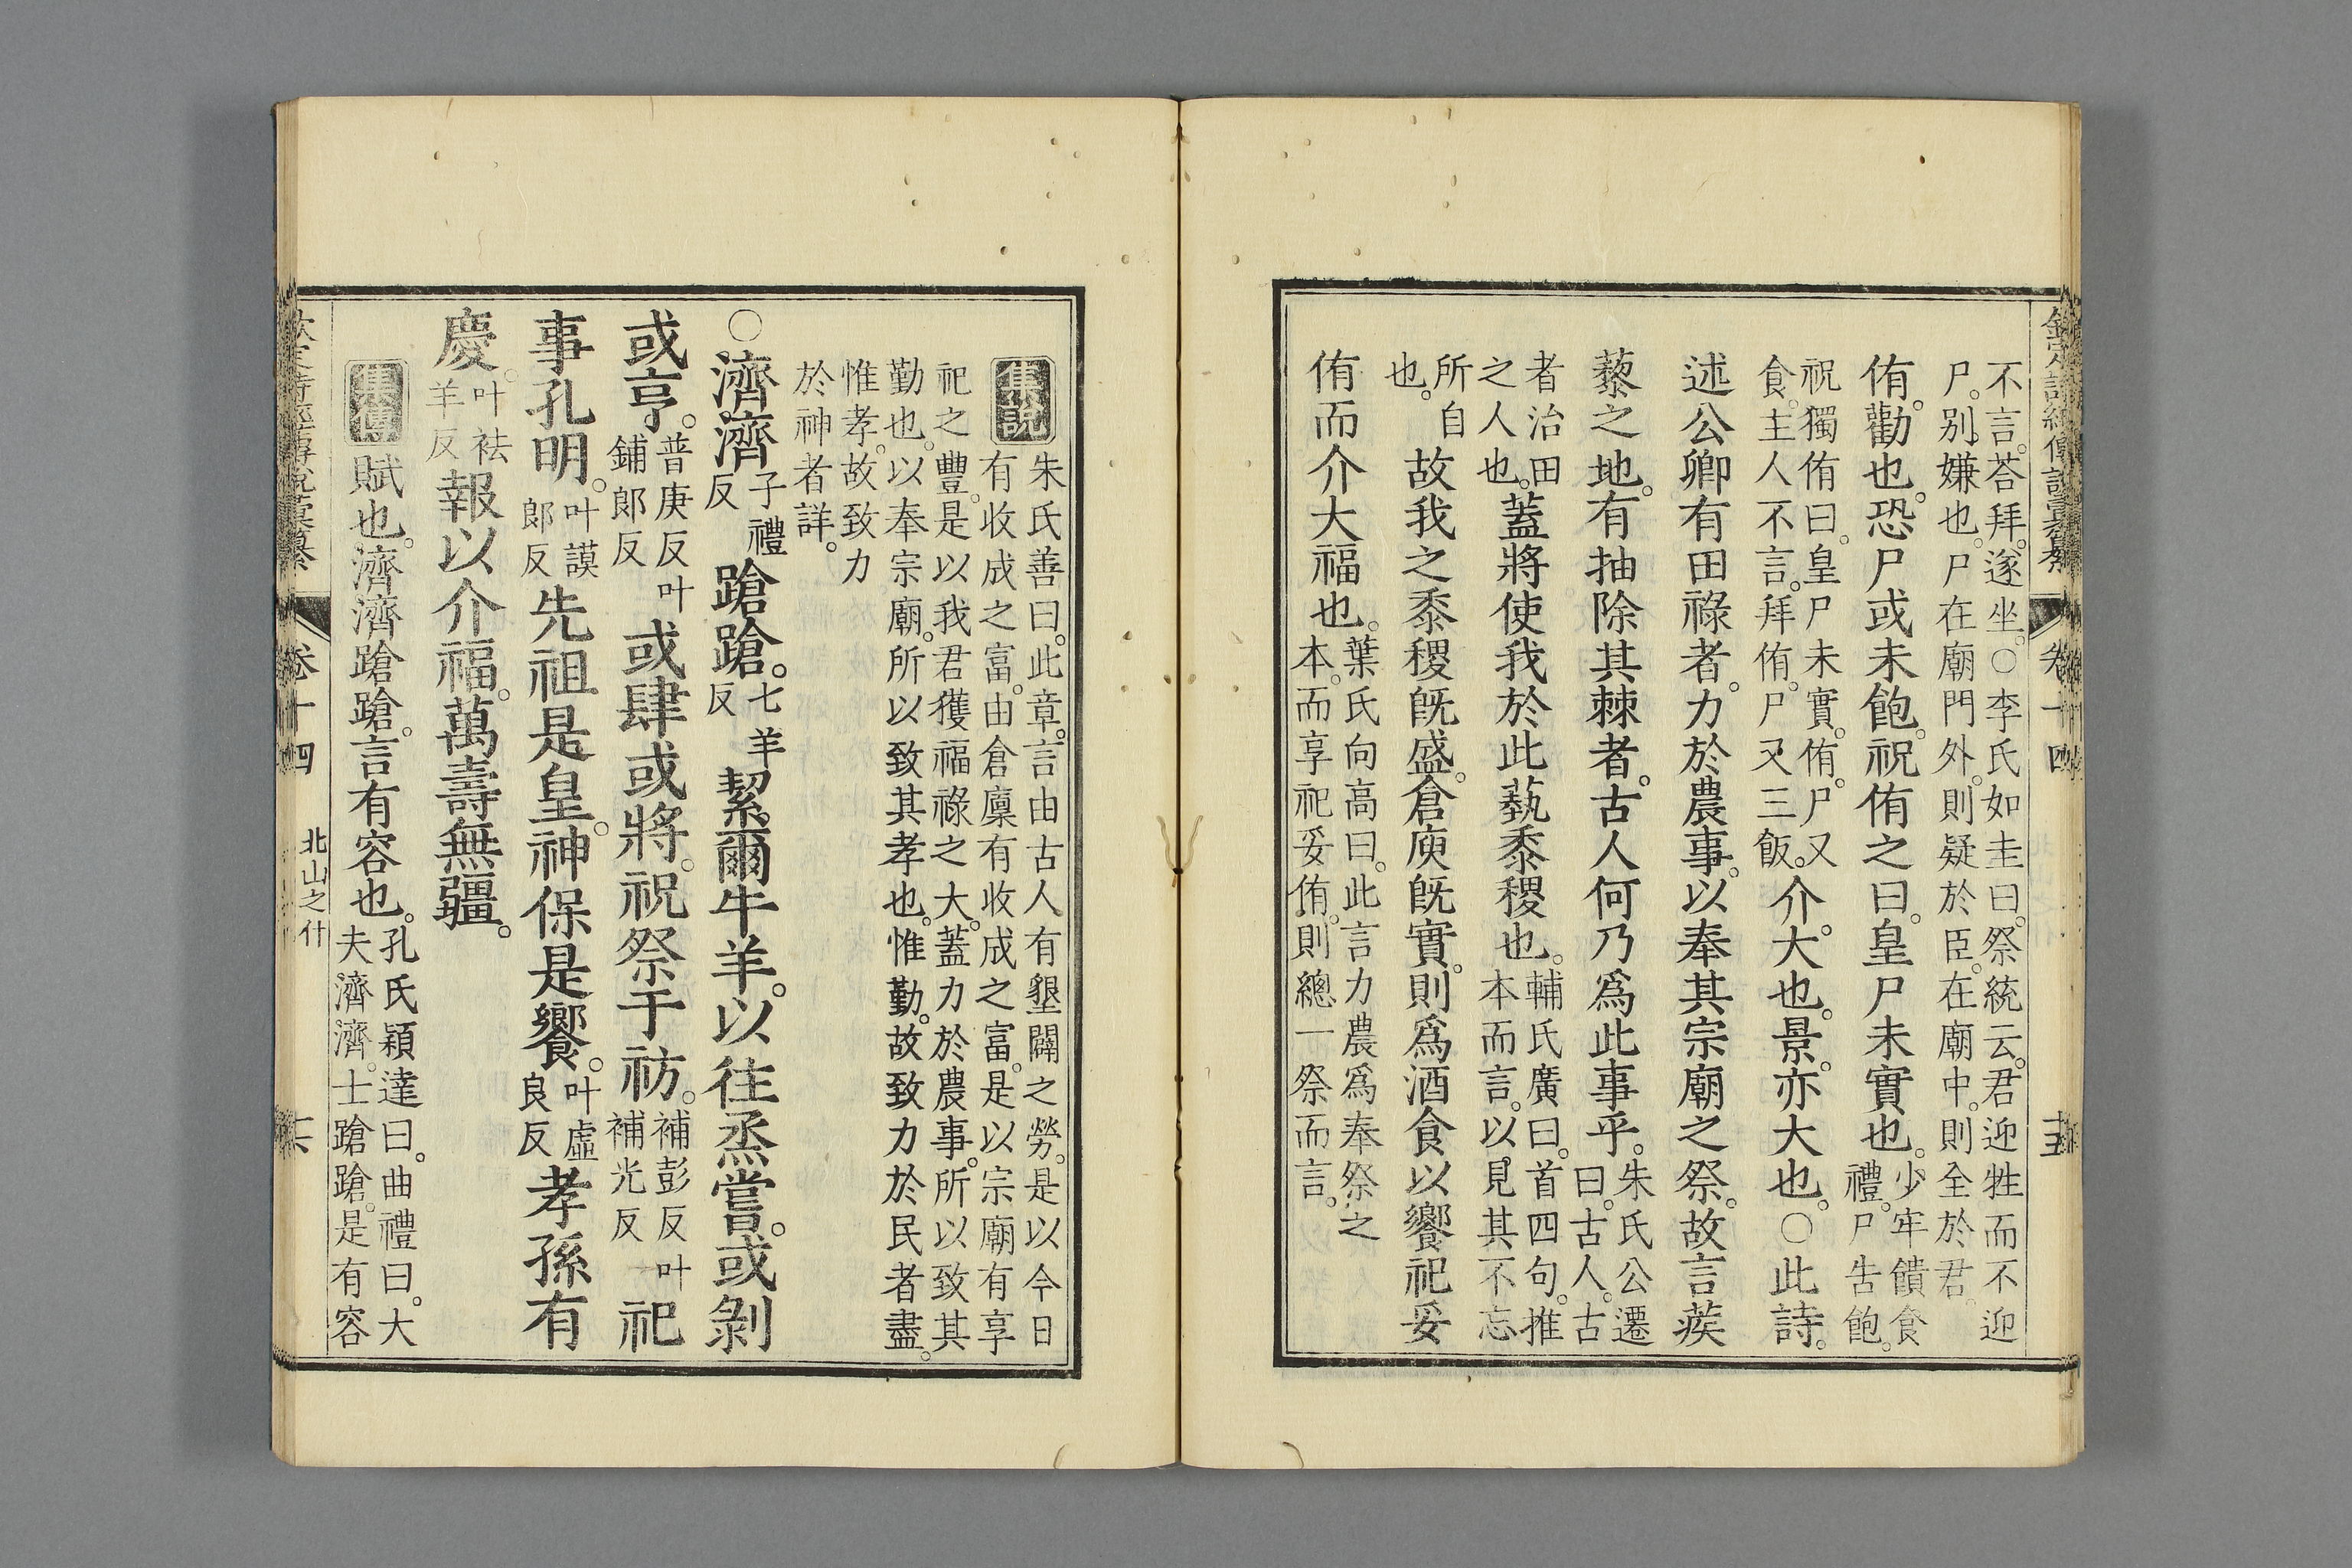 欽定詩經傳說彙纂 卷十四 十五
不言荅拜。遂坐。○李氏如圭曰。祭統云。君迎牲而不迎
尸。别嫌也。尸在廟門外。則疑於臣。在廟中。則全於君。
侑。勸也。恐尸或未飽。祝侑之曰。皇尸未實也。少牢饋食
禮。尸告飽。
祝獨侑曰。皇尸未實。侑。尸又
食。主人不言。拜侑。尸又三飯。介。大也。景。亦大也。○此詩。
述公卿有田祿者。力於農事。以奉其宗廟之祭。故言蒺
藜之地。有抽除其棘者。古人何乃爲此事乎。朱氏公遷
曰。古人。古
者治田
之人也。蓋將使我於此蓺黍稷也。輔氏廣曰。首四句。推
本而言。以見其不忘
所自
也。故我之黍稷旣盛。倉庾旣實。則爲酒食以饗祀妥
侑而介大福也。葉氏向高曰。此言力農爲奉祭之
本。而享祀妥侑。則總一祭而言。
集說 朱氏善曰。此章。言由古人有墾闢之勞。是以今日
有收成之富。由倉廩有收成之富。是以宗廟有享
祀之豐。是以我君獲福祿之大。蓋力於農事。所以致其
勤也。以奉宗廟。所以致其孝也。惟勤。故致力於民者盡。
惟孝。故致力
於神者詳。
○濟濟子禮反蹌蹌。七羊反絜爾牛羊。以往烝嘗。或剝
或亨。普庚反叶鋪郎反或肆或將。祝祭于祊。補彭反叶補光反祀
事孔明。叶謨郎反先祖是皇。神保是饗。叶虛良反孝孫有
慶。叶袪羊反報以介福。萬壽無疆。
集傳 賦也。濟濟蹌蹌。言有容也。孔氏穎達曰。曲禮曰。大
夫濟濟。士蹌蹌。是有容
欽定詩經傳說彙纂 卷十四 北山之什 十六